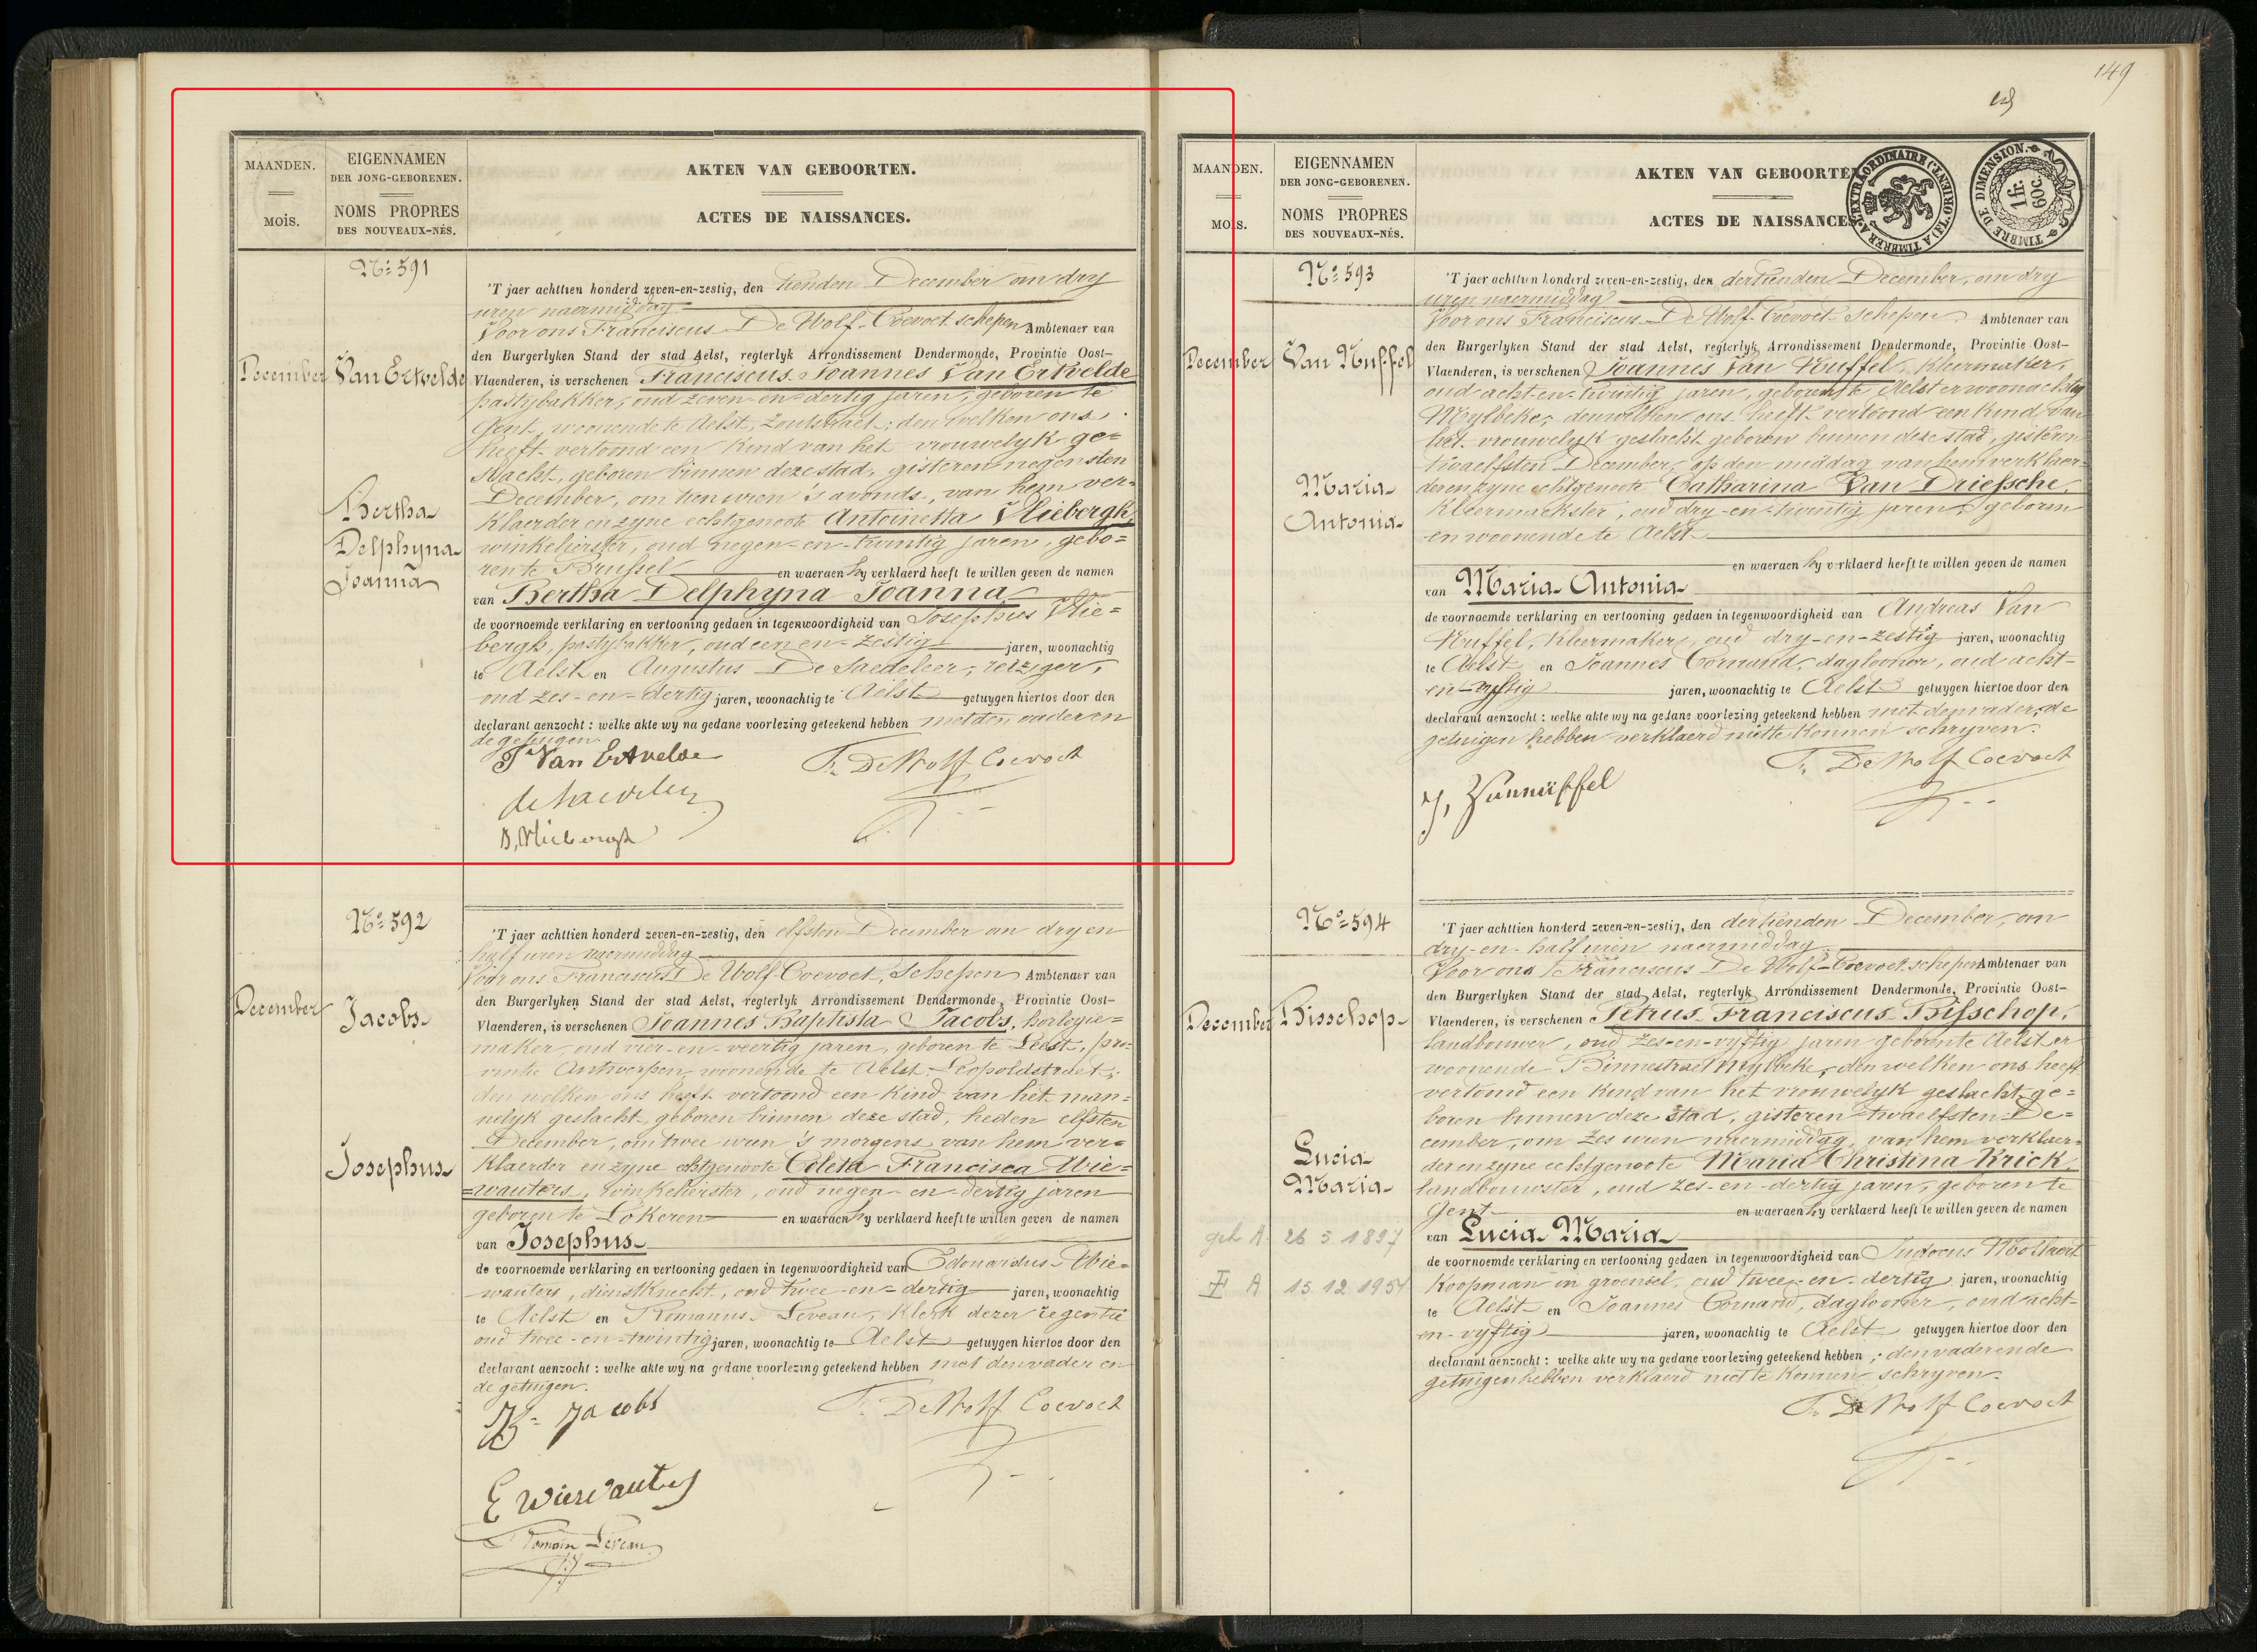 149
MAANDEN.
MOIS.
EIGENNAMEN
DER JONG-GEBORENEN.
NOMS PROPRES
DES NOUVEAUX-NÉS.
AKTEN VAN GEBOORTEN.
ACTES DE NAISSANCES.
Nº 591
December
Van Ertvelde
Bertha
Delphyna
Joanna
'T jaer achttien honderd zeven-en-zestig, den tienden December om dry
uren naermiddag
Voor ons Franciscus De Wolf-Coevoet schepen Ambtenaer van
den Burgerlyken Stand der stad Aelst, regterlyk Arrondissement Dendermonde, Provintie Oost-
Vlaenderen, is verschenen Franciscus Joannes Van Ertvelde
pastybakker, oud zeven-en-dertig jaren, geboren te
Gent, woonende te Aelst, Zoutstraet; den welken ons
heeft vertoond een kind van het vrouwelyk ge=
slacht, geboren binnen deze stad, gisteren negensten
December, om tien uren 's avonds, van hem ver=
klaerder en zyne echtgenoote Antoinetta Vliebergh,
winkelierster, oud negen-en-twintig jaren, gebo=
ren te Brussel en waeraen hy verklaerd heeft te willen geven de namen
van Bertha Delphyna Joanna
de voornoemde verklaring en vertooning gedaen in tegenwoordigheid van Josephus Vlie=
bergh, pastybakker, oud een en-zestig jaren, woonachtig
te Aelst en Augustus De Saedeleer, reiziger,
oud zes-en-dertig jaren, woonachtig te Aelst getuygen hiertoe door den
declarant aenzocht : welke akte wy na gedane voorlezing geteekend hebben met den vader en
de getuigen.
F Van Ertvelde
Fr. De Wolf Coevoet
Nº 592
December
Jacobs
Josephus
'T jaer achttien honderd zeven-en-zestig, den elfsten December om dry en
half uren naermiddag
Voor ons Franciscus De Wolf-Coevoet, Schepen Ambtenaer van
den Burgerlyken Stand der stad Aelst, regterlyk Arrondissement Dendermonde, Provintie Oost-
Vlaenderen, is verschenen Joannes Baptista Jacobs, horlogie=
maker, oud vier-en-veertig jaren, geboren te Leest, pro=
vintie Antwerpen, woonende te Aelst, Leopoldstraet;
den welken ons heeft vertoond een kind van het man=
nelyk geslacht geboren binnen deze stad, heden elfsten
December, om twee uren 's morgens van hem ver=
klaerder en zyne echtgenoote Coleta Francisca Wie=
=wauters, winkelierster, oud negen-en-dertig jaren
geboren te Lokeren en waeraen hy verklaerd heeft te willen geven de namen
van Josephus
de voornoemde verklaring en vertooning gedaen in tegenwoordigheid van Edouardus Wie=
wauters, dienstknecht, oud twee-en-dertig jaren, woonachtig
te Aelst en Romanus Leveau, klerk dezer regentie
oud twee-en-twintig jaren, woonachtig te Aelst getuygen hiertoe door den
declarant aenzocht : welke akte wy na gedane voorlezing geteekend hebben met den vader en
de getuigen.
Jacobs
Fr. De Wolf Coevoet
E Wiewauters
Romain Leveau
MAANDEN.
MOIS.
EIGENNAMEN
DER JONG-GEBORENEN.
NOMS PROPRES
DES NOUVEAUX-NÉS.
AKTEN VAN GEBOORTE
ACTES DE NAISSANCES
TIMBRE DE DIMENSION
1fr. 60c.
Nº 593
December
Van Nuffel
Maria
Antonia
'T jaer achttien honderd zeven-en-zestig, den dertienden December, om dry
uren naermiddag
Voor ons Franciscus De Wolf-Coevoet Schepen Ambtenaer van
den Burgerlyken Stand der stad Aelst, regterlyk Arrondissement Dendermonde, Provintie Oost-
Vlaenderen, is verschenen Joannes Van Nuffel, kleermaker,
oud acht-en-twintig jaren, geboren te Aelst en woonachtig
Mylbeke, denwelken ons heeft vertoond een kind van
het vrouwelyk geslacht geboren binnen deze stad, gisteren
twaelfsten December, op den middag van hem verklaer=
der en zyne echtgenoote Catharina Van Driessche,
kleermaekster, oud dry-en-twintig jaren, geboren
en woonende te Aelst
en waeraen hy verklaerd heeft te willen geven de namen
van Maria Antonia
de voornoemde verklaring en vertooning gedaen in tegenwoordigheid van Andreas Van
Nuffel, kleermaker, oud dry-en-zestig jaren, woonachtig
te Aelst en Joannes Cornand, daglooner, oud acht-
en-vyftig jaren, woonachtig te Aelst getuygen hiertoe door den
declarant aenzocht : welke akte wy na gedane voorlezing geteekend hebben met den vader; de
getuigen hebben verklaerd niet te konnen schryven.
Fr. De Wolf Coevoet
J, Vannuffel
Nº 594
December
Bisschop
Lucia
Maria
26 5 1897
15 12 1954
'T jaer achttien honderd zeven-en-zestig, den dertienden December, om
dry-en-half uren naermiddag
Voor ons Franciscus De Wolf-Coevoet schepen Ambtenaer van
den Burgerlyken Stand der stad Aelst, regterlyk Arrondissement Dendermonde, Provintie Oost-
Vlaenderen, is verschenen Petrus Franciscus Bisschop,
landbouwer, oud zes-en-vyftig jaren geboren te Aelst en
woonende Binnestraet Mylbeke, den welken ons heeft
vertoond een kind van het vrouwelyk geslacht, ge=
boren binnen deze stad, gisteren twaelfsten De=
cember, om zes uren naermiddag, van hem verklaer=
der en zyne echtgenoote Maria Christina Krick,
landbouwster, oud zes-en-dertig jaren, geboren te
Gent en waeraen hy verklaerd heeft te willen geven de namen
van Lucia Maria
de voornoemde verklaring en vertooning gedaen in tegenwoordigheid van Judocus
koopman in groensel, oud twee-en-dertig jaren, woonachtig
te Aelst en Joannes Cornand, daglooner, oud acht-
en-vyftig jaren, woonachtig te Aelst getuygen hiertoe door den
declarant aenzocht : welke akte wy na gedane voorlezing geteekend hebben ; den vader en de
getuigen hebben verklaerd niet te konnen schryven.
Fr. De Wolf Coevoet